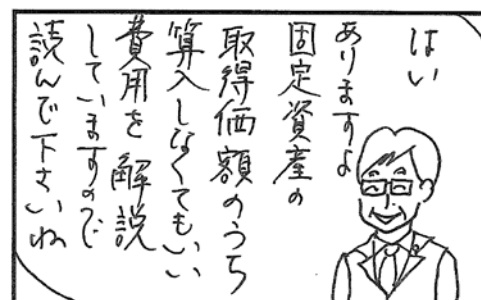 はい
ありますよ
固定資産の
取得価額のうち
算入しなくてもいい
費用を解説
していますので
読んで下さいね